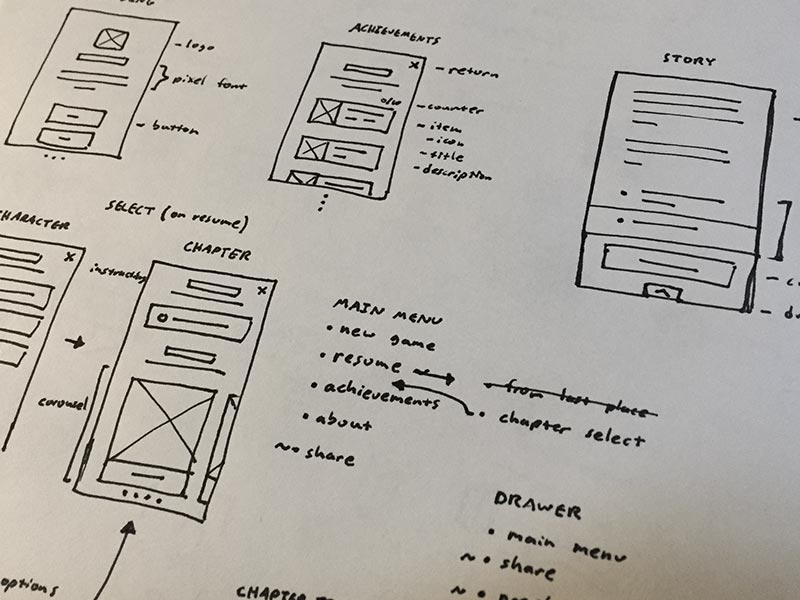 ACHIEVEMENTS
STORY
- logo
} pixel font
- button
x - return
0/00
- counter
- item
- icon
- title
- description
SELECT (on resume)
CHARACTER
x
CHAPTER
x
carousel
MAIN MENU
• new game
• resume
• achievements
• about
~• share
• from last place
• chapter select
DRAWER
• main menu
~ • share
options
CHAPTER